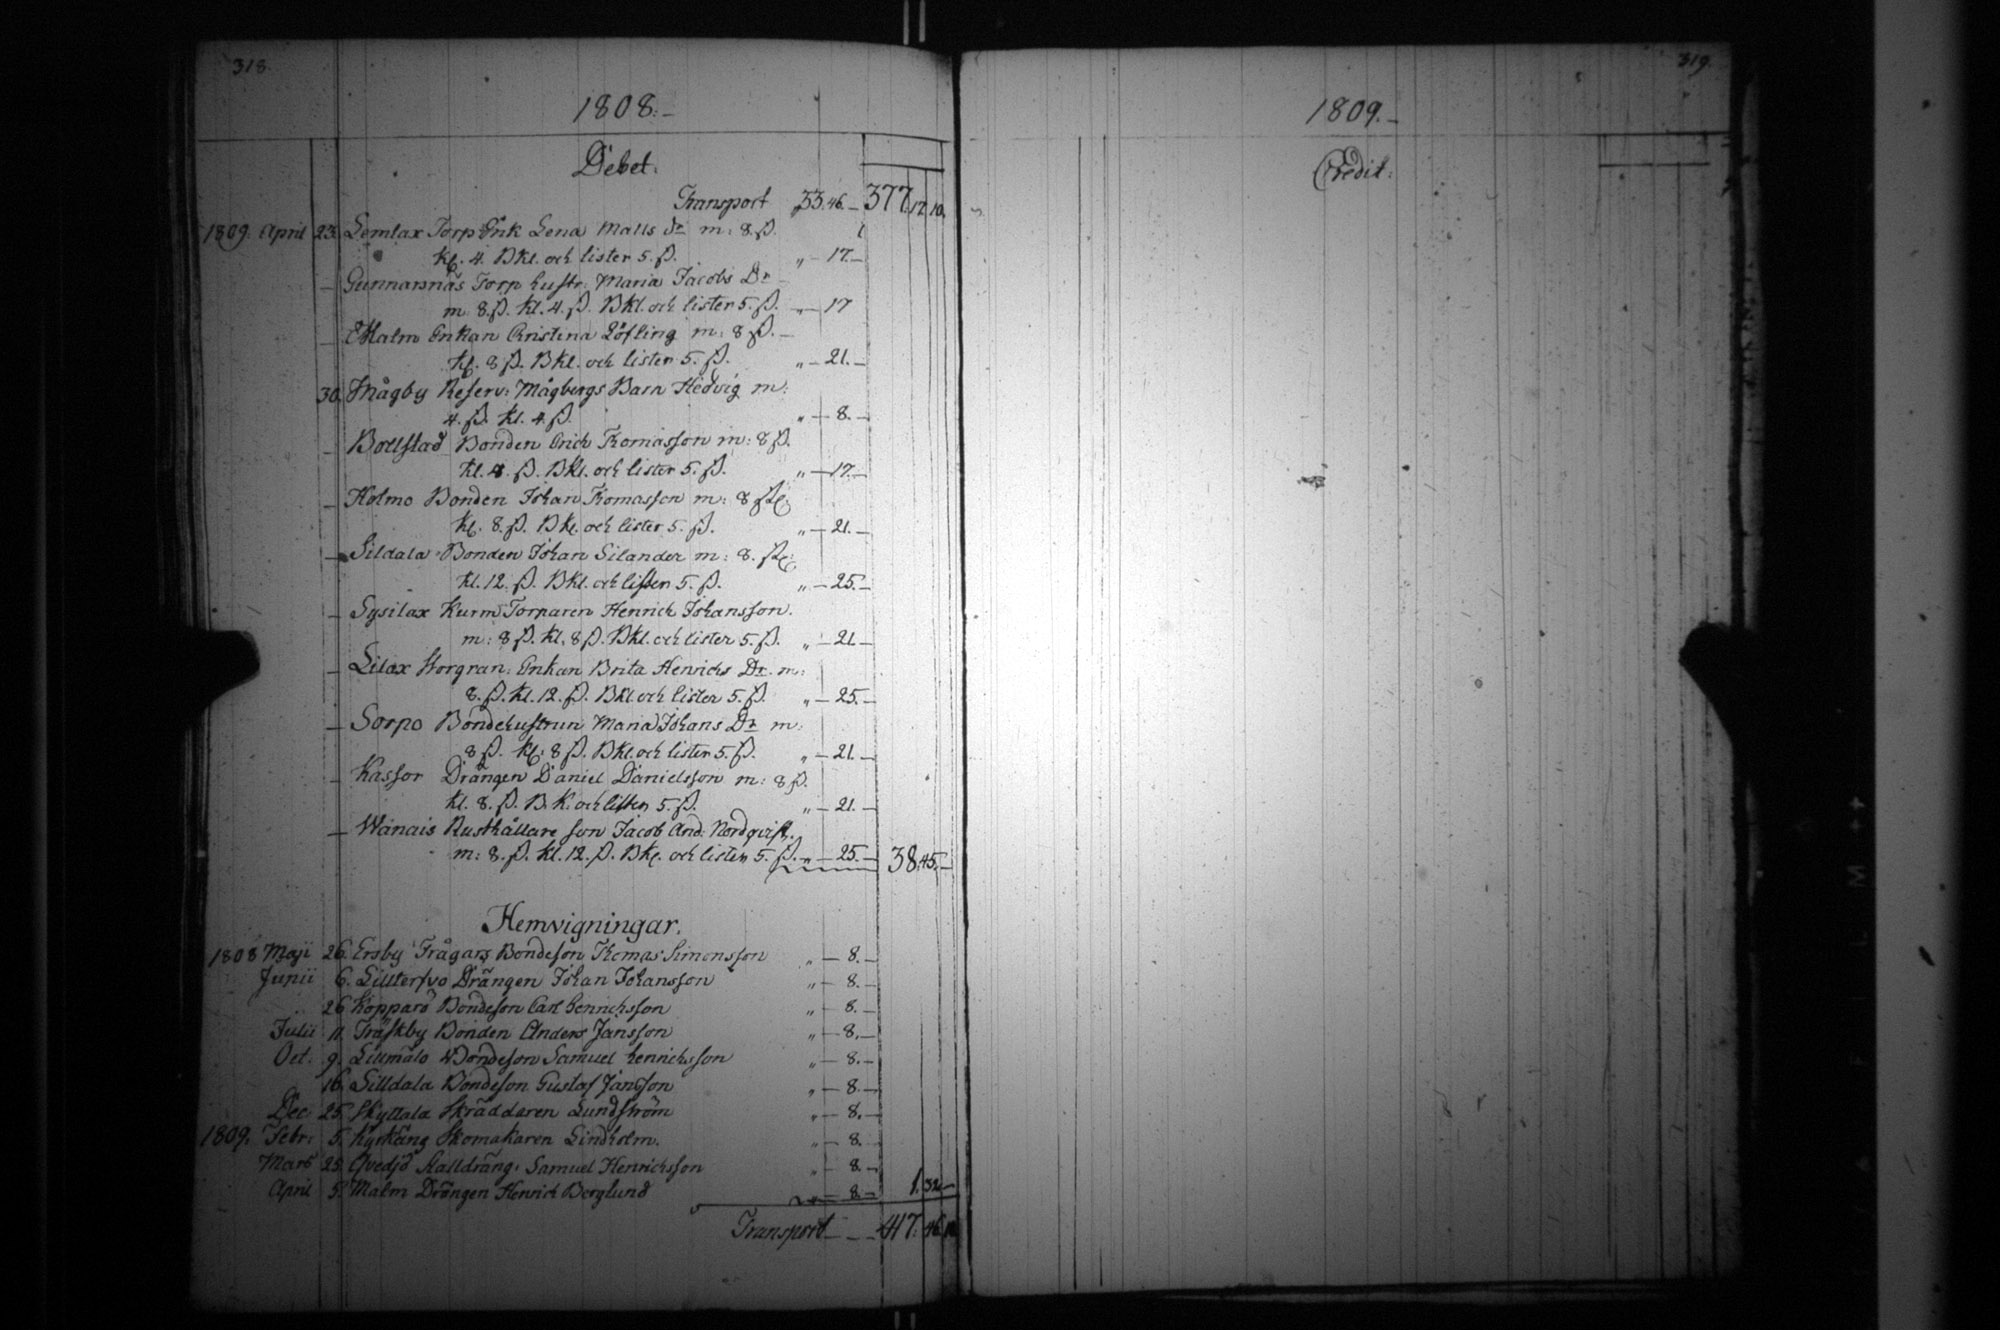 318
1808.–
Debet.
Transport 33.46.– 377.12.10.
1809. April 23. Lemlax Torp Enk Lena Matts Dr m: 8.ß.
kl. 4. Bkl. och lister 5.ß. „–17.–
– Gunnarsnäs Torp hustr. Maria Jacobs Dr
m 8.ß. kl. 4.ß. Bkl. och lister 5.ß. „–17
– Malm Enkan Christina Löfling m: 8 ß.–
kl. 8 ß. Bkl. och lister 5.ß. „–21.–
30. Mågby Reserv: Mågbergs Barn Hedvig m:
4.ß. kl. 4.ß. „–8.–
– Bollstad Bonden Erich Thomasson m: 8 ß.
kl. 4.ß. Bkl. och lister 5.ß. „–17.–
– Holmo Bonden Johan Thomasson m: 8 ß
kl. 8.ß. Bkl. och lister 5.ß. „–21.–
– Sildala Bonden Johan Silander m: 8.ß
kl. 12.ß. Bkl. och lister 5.ß. „–25.–
– Sysilax Kurm Torparen Henrich Johansson.
m: 8 ß. kl. 8 ß. Bkl. och lister 5.ß. „–21–
– Lilax Storgran: Enkan Brita Henrichs Dr. m:
8.ß. kl. 12.ß. Bkl. och lister 5.ß. „–25.–
– Sorpo Bondehustrun Maria Johans Dr m:
8 ß. kl: 8 ß. Bkl. och lister 5.ß. „–21.–
– Kassor Drängen Daniel Danielsson m: 8 ß.
kl. 8.ß. B.K. och lister 5.ß. „–21.–
– Wånais Rusthållare son Jacob And. Nordqvist.
m: 8.ß. kl. 12.ß. Bkl. och lister 5.ß. „–25.– 38.45.–
Hemvigningar.
1808 Maji 26. Ersby Frågars Bondeson Thomas Simonsson „–8.–
Junii 6. Lilltervo Drängen Johan Johansson „–8.–
26 Koppard Bondeson Carl Henrichsson „–8.–
Julii 11. Träskby Bonden Anders Jansson „–8.–
Oct. 9. Lillmälö Bondeson Samuel Henrichsson „–8.–
16. Silldala Bondeson Gustaf Jansson „–8–
Dec 25. Skyttala Skräddaren Lundström „–8.–
1809. Febr: 5. Kyrkäng Skomakaren Lindholm. „–8.
Mars 25. Qvedjo Stalldräng: Samuel Henrichsson „–8.–
April 5. Malm Drängen Henrich Berglund „–8.– 1.32.–
Transport–– – 417.46.10.
319.
1809.–
Credit.